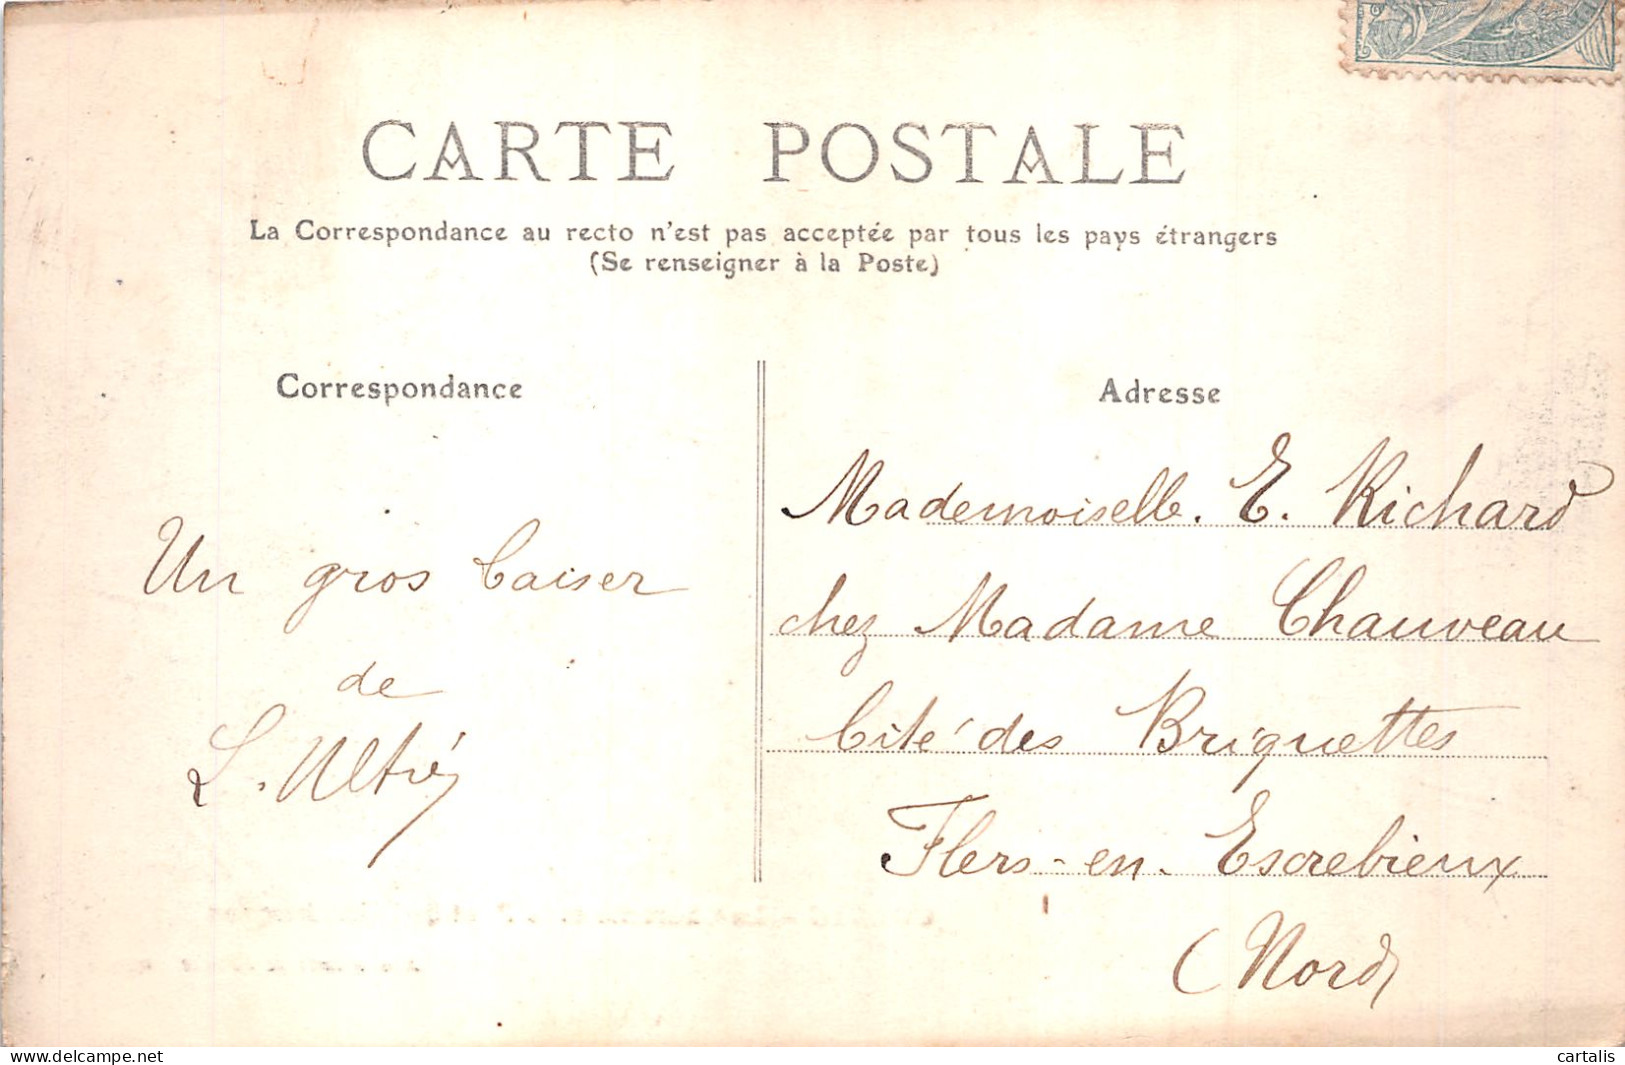 CARTE POSTALE
La Correspondance au recto n'est pas acceptée par tous les pays étrangers
(Se renseigner à la Poste)
Correspondance
Un gros baiser
de
Adresse
Mademoiselle. E. Richard
chez Madame Chauveau
Cité des Briquettes
Flers-en-Escrebieux
(Nord)
www.delcampe.net
cartalis